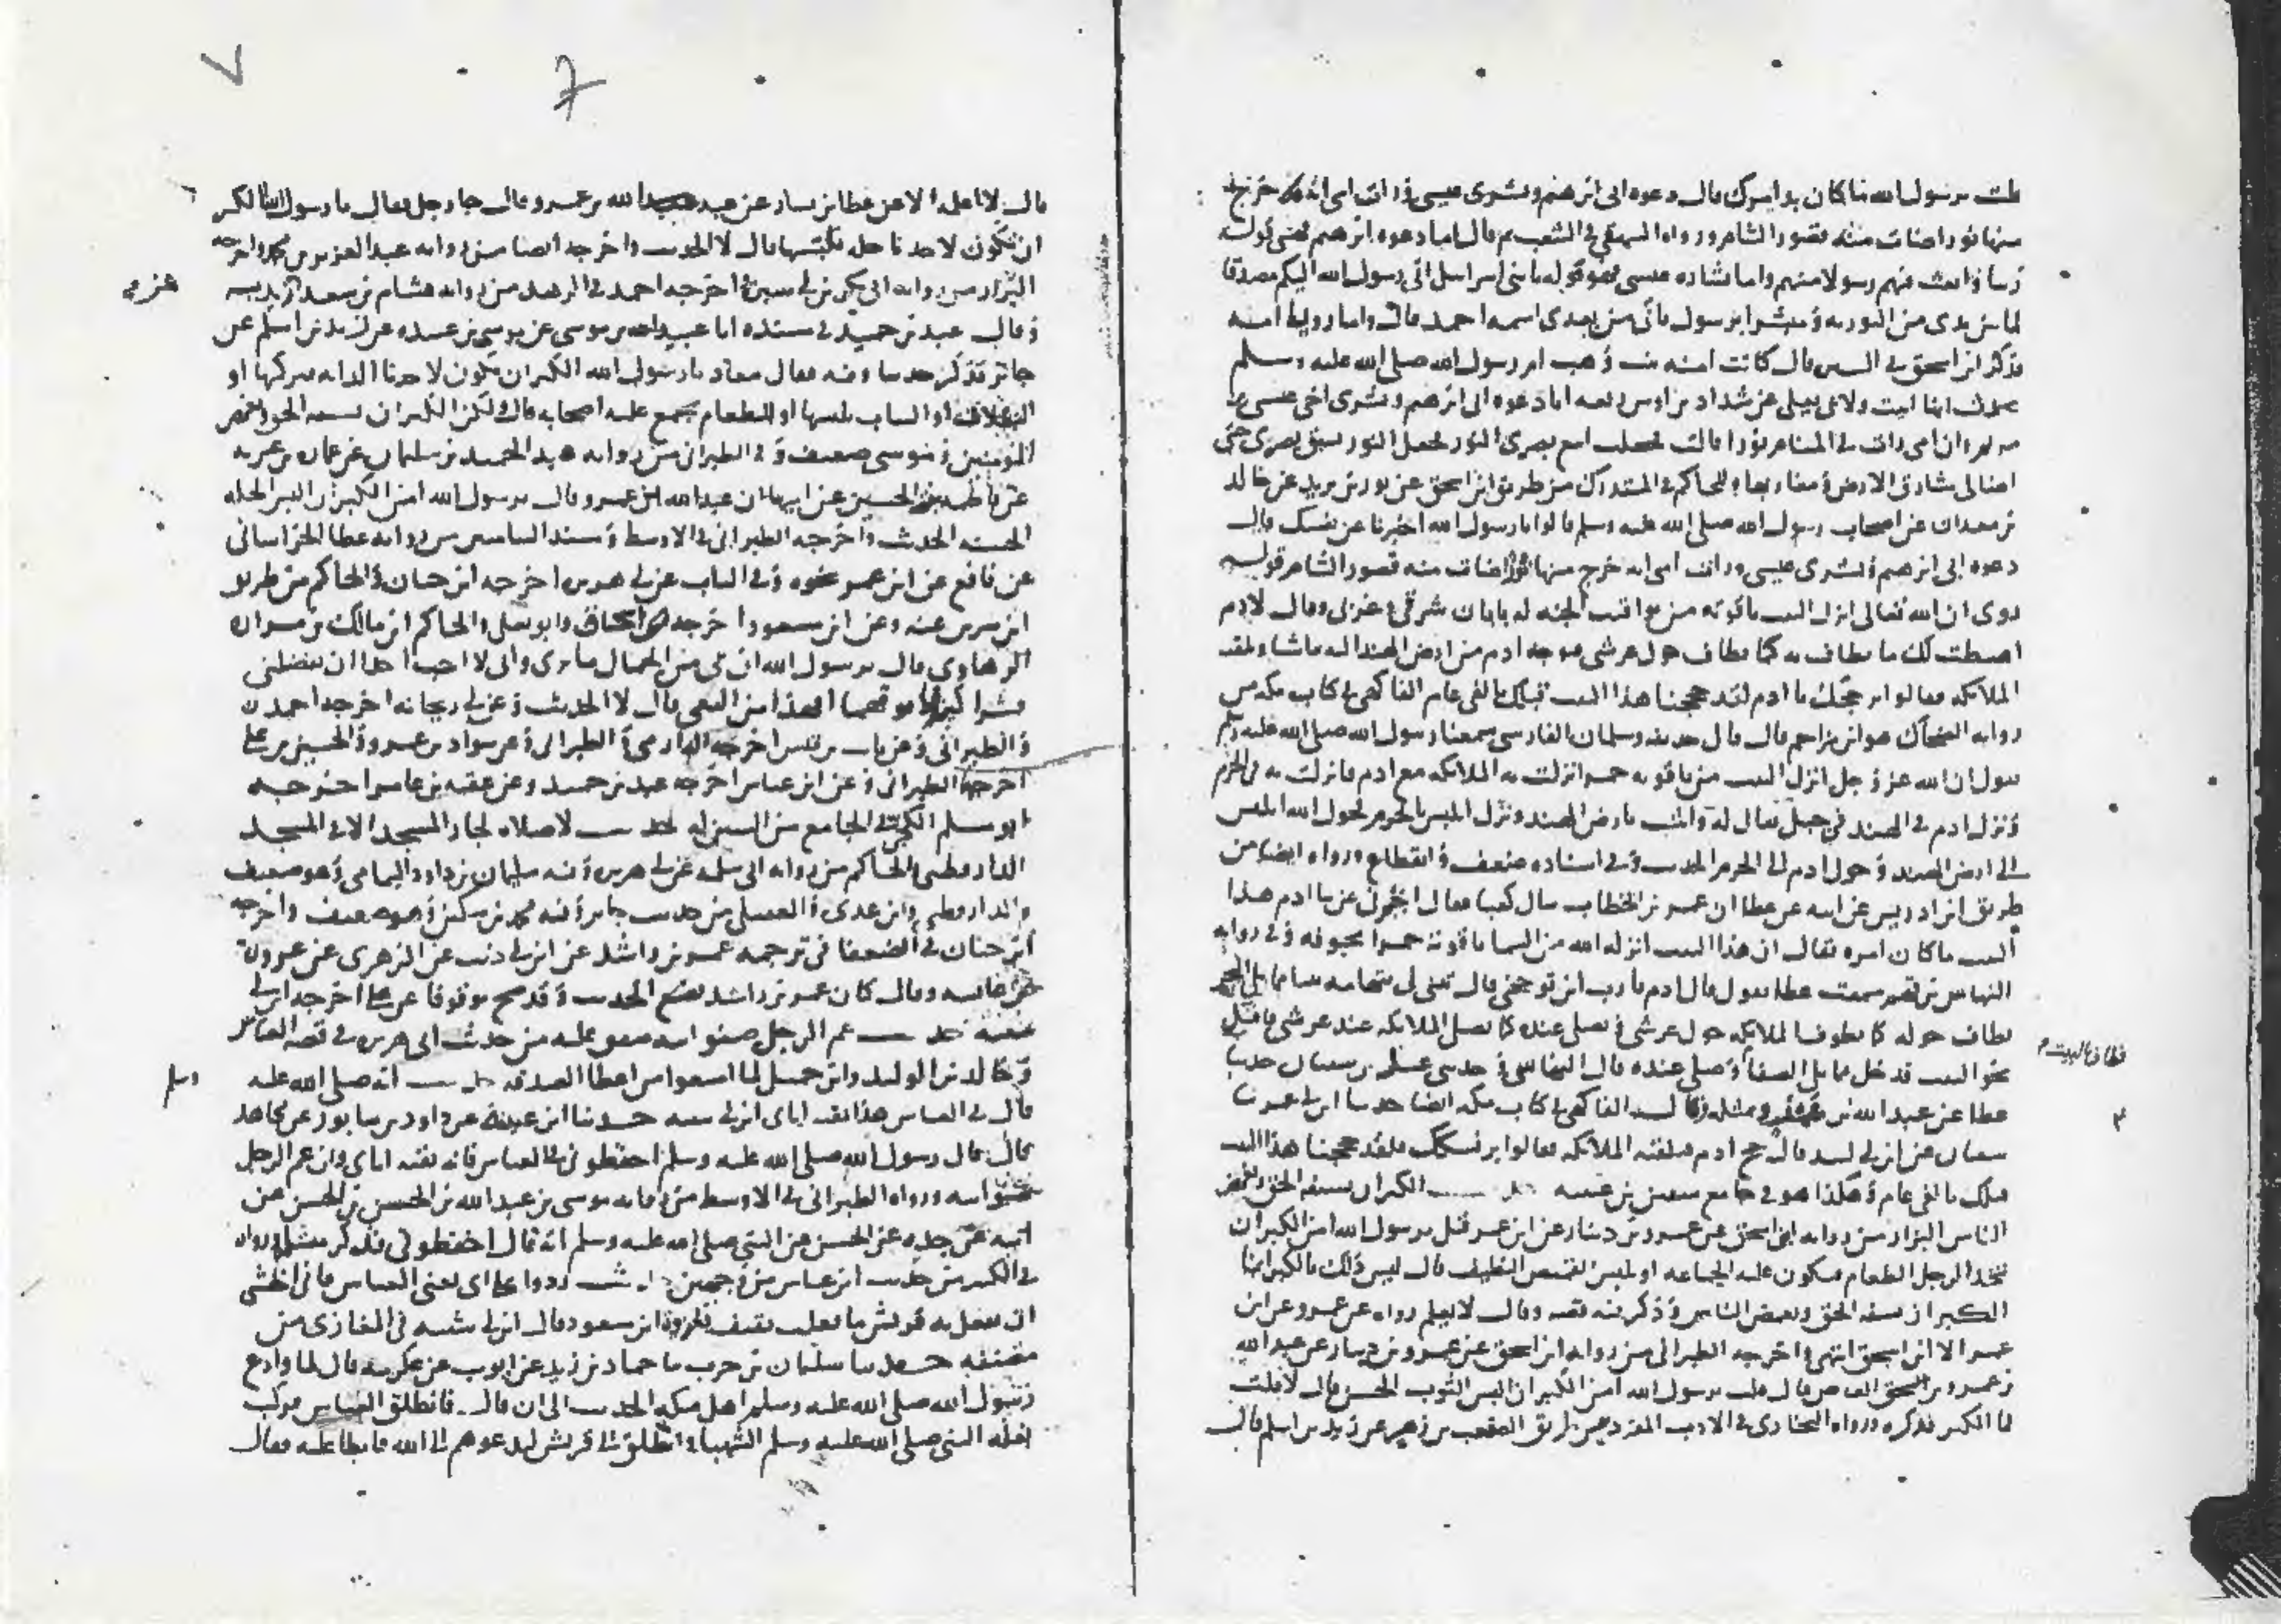 قلت يرسول الله ما كان بدا امرك قال دعوه ابى ابرهيم وبشرى عيسى ورات امى انه خرج
منها نور اضات منه قصور الشام ورواه البيهقي في الشعب ثم قال اما دعوه ابرهيم فهى قوله
ربنا وابعث فيهم رسولا منهم واما بشاره عيسى فهو قوله يا بنى اسرايل انى رسول الله اليكم مصدقا
لما بين يدى من التوريه ومبشرا برسول ياتى من بعدى اسمه احمد قال واما رويا امنه
فذكر ابن اسحق في السير قال كانت امنه بنت وهب ام رسول الله صلى الله عليه وسلم
تحدث انها اتيت ولابى يعلى عن شداد بن اوس رفعه انا دعوه ابى ابرهيم وبشرى اخى عيسى
ان امى رات في المنام نورا قالت فجعلت اتبع بصرى النور فجعل النور يسبق بصرى حتى
اضا لى مشارق الارض ومغاربها وللحاكم في المستدرك من طريق ابن اسحق عن ثور بن يزيد عن خالد
بن معدان عن اصحاب رسول الله صلى الله عليه وسلم قالوا يا رسول الله اخبرنا عن نفسك قال
دعوه ابى ابرهيم وبشرى عيسى ورات امى انه خرج منها نور اضات منه قصور الشام قوله
روى ان الله تعالى انزل البيت ياقوته من يواقيت الجنه له بابان شرقى وغربى وقال لادم
اهبطت لك ما يطاف به كما يطاف حول عرشى فتوجه ادم من ارض الهند اليه ماشيا وتلقته
الملايكه فقالوا بر حجك يا ادم لقد حججنا هذا البيت قبلك بالفى عام الفاكهى في كتاب مكه من
روايه الضحاك هو ابن مزاحم قال قال حذيفه وسلمان الفارسى سمعنا رسول الله صلى الله عليه وسلم
يقول ان الله عز وجل انزل البيت من ياقوته حمرا نزلت به الملايكه مع ادم فانزلت به في الحرم
ونزل ادم في الهند في جبل يقال له بارض الهند ونزل ابليس بالحرم فحول الله ابليس
الى ارض الهند وحول ادم الى الحرم الحديث وفي اسناده ضعف وانقطاع ورواه ايضا من
طريق ابن ادريس عن ابيه عن عطا ان عمر بن الخطاب سال كعبا فقال اخبرنى عن بنا ادم هذا
البيت ما كان امره فقال ان هذا البيت انزله الله من السما ياقوته حمرا مجوفه وفي روايه
النهاس بن قهم سمعت عطا يقول قال ادم يا رب اين توجهنى قال
يطاف حوله كما يطوف الملايكه حول عرشى ويصلى عنده كما يصلى الملايكه عند عرشى فاقبل
نحو البيت فدخل مما يلى الصفا وصلى عنده قال النهاس وحدثنى
عطا عن عبد الله بن وقال الفاكهى في كتاب مكه ايضا حدثنا ابن ابى عمر نا
سفيان عن ابن ابى لبيد قال حج ادم فتلقته الملايكه فقالوا بر نسكك فلقد حججنا هذا البيت
قبلك بالفى عام وهكذا هو في جامع سفين بن عيينه حديث الكبر ان يسفه الحق ويغمص
الناس البزار من روايه ابن اسحق عن عمرو بن دينار عن ابن عمر قيل يرسول الله امن الكبر ان
يتخذ الرجل الطعام فيكون عليه الجماعه او يلبس القميص النظيف قال ليس ذلك بالكبر انما
الكبر ان يسفه الحق ويغمص الناس وذكر فيه قصه وقال لا نعلم رواه عن عمرو عن ابن
عمر الا ابن اسحق انتهى واخرجه الطبرانى من روايه ابن اسحق عن عمرو بن دينار عن عبد الله
بن عمرو بن العاص قال قلت يرسول الله امن الكبر ان البس الثوب الحسن قال لا قلت
فما الكبر فذكره ورواه البخارى في الادب المفرد من طريق بن زهير عن زيد بن اسلم قال
فطاف بالبيت
٧
قال لا اعلمه الا عن عطا بن يسار عن عبد الله بن عمرو قال جا رجل فقال يا رسول الله الكبر
ان يكون لاحدنا حله يلبسها قال لا الحديث واخرجه ايضا من روايه عبد العزيز بن محمد واخرجه
البزار من روايه ابى بكر بن ابى سبره واخرجه احمد في الزهد من روايه هشام بن سعد
وقال عبد بن حميد في مسنده انا عبيد الله بن موسى عن موسى بن عبيده عن زيد بن اسلم عن
جابر فذكر حديثا وفيه فقال معاذ يا رسول الله الكبر ان يكون لاحدنا الدابه يركبها او
النعلان او الثياب يلبسها او الطعام يجمع عليه اصحابه قال ولكن الكبر ان يسفه الحق ويغمص
المومنين وموسى ضعيف وفي الطبرانى من روايه عبد الحميد بن سليمان عن عماره بن غزيه
عن فاطمه بنت الحسين عن ابيها ان عبد الله بن عمرو قال يرسول الله امن الكبر ان البس الحله
الحسنه الحديث واخرجه الطبرانى في الاوسط ومسند الشاميين من روايه عطا الخراسانى
عن نافع عن ابن عمر نحوه وفي الباب عن ابى هريره اخرجه ابن حبان والحاكم من طريق
ابن سيرين عنه وعن ابن مسعود اخرجه اسحاق وابو يعلى والحاكم ان مالك بن مراره
الرهاوى قال يرسول الله انى لى من الجمال ما ترى وانى لا احب احدا ان يفضلنى
بشراكين فما فوقهما افهذا من البغى قال لا الحديث وعن ابى ريحانه اخرجه احمد
والطبرانى وعن ثابت بن قيس اخرجه الطبرانى وعن سواد بن عمرو والحسين بن على
اخرجه الطبرانى وعن ابن عباس اخرجه عبد بن حميد وعن عقبه بن عامر اخرجه
ابو مسلم الكجى في الجامع من السنن له حديث لا صلاه لجار المسجد الا في المسجد
الدارقطنى والحاكم من روايه ابى سلمه عن ابى هريره وفيه سليمان بن داود اليمامى وهو ضعيف
والدارقطنى وابن عدى والعقيلى من حديث جابر وفيه محمد بن سكين وهو ضعيف واخرجه
ابن حبان في الضعفا في ترجمه عمر بن راشد عن ابن ابى ذيب عن الزهرى عن عروه
عن عايشه وقال كان عمر بن راشد يضع الحديث وقد صح موقوفا عن على اخرجه ابن ابى
شيبه حديث عم الرجل صنو ابيه متفق عليه من حديث ابى هريره في قصه العباس
وخالد بن الوليد وابن جميل لما امتنعوا من اعطا الصدقه حديث انه صلى الله عليه
وسلم
قال في العباس هذا بقيه اباى ابن ابى شيبه حدثنا ابن عيينه عن داود بن سابور عن مجاهد
قال قال رسول الله صلى الله عليه وسلم احفظونى في العباس فانه بقيه اباى وان عم الرجل
صنو ابيه ورواه الطبرانى في الاوسط من روايه موسى بن عبد الله بن الحسن بن الحسن عن
ابيه عن جده عن الحسن عن النبي صلى الله عليه وسلم انه قال احفظونى فذكر مثله ورواه
في الكبير من حديث ابن عباس من وجهين حديث ردوا على ابى يعنى العباس فانى اخشى
ان تفعل به قريش ما فعلت ثقيف بعروه بن مسعود قال ابن ابى شيبه في المغازى من
مصنفه حدثنا سليمان بن حرب نا حماد بن زيد عن ايوب عن عكرمه قال لما وادع
رسول الله صلى الله عليه وسلم اهل مكه الحديث الى ان قال فانطلق العباس فركب
بغله النبي صلى الله عليه وسلم الشهبا وانطلق الى قريش ليدعوهم الى الله فابطا عليه فقال